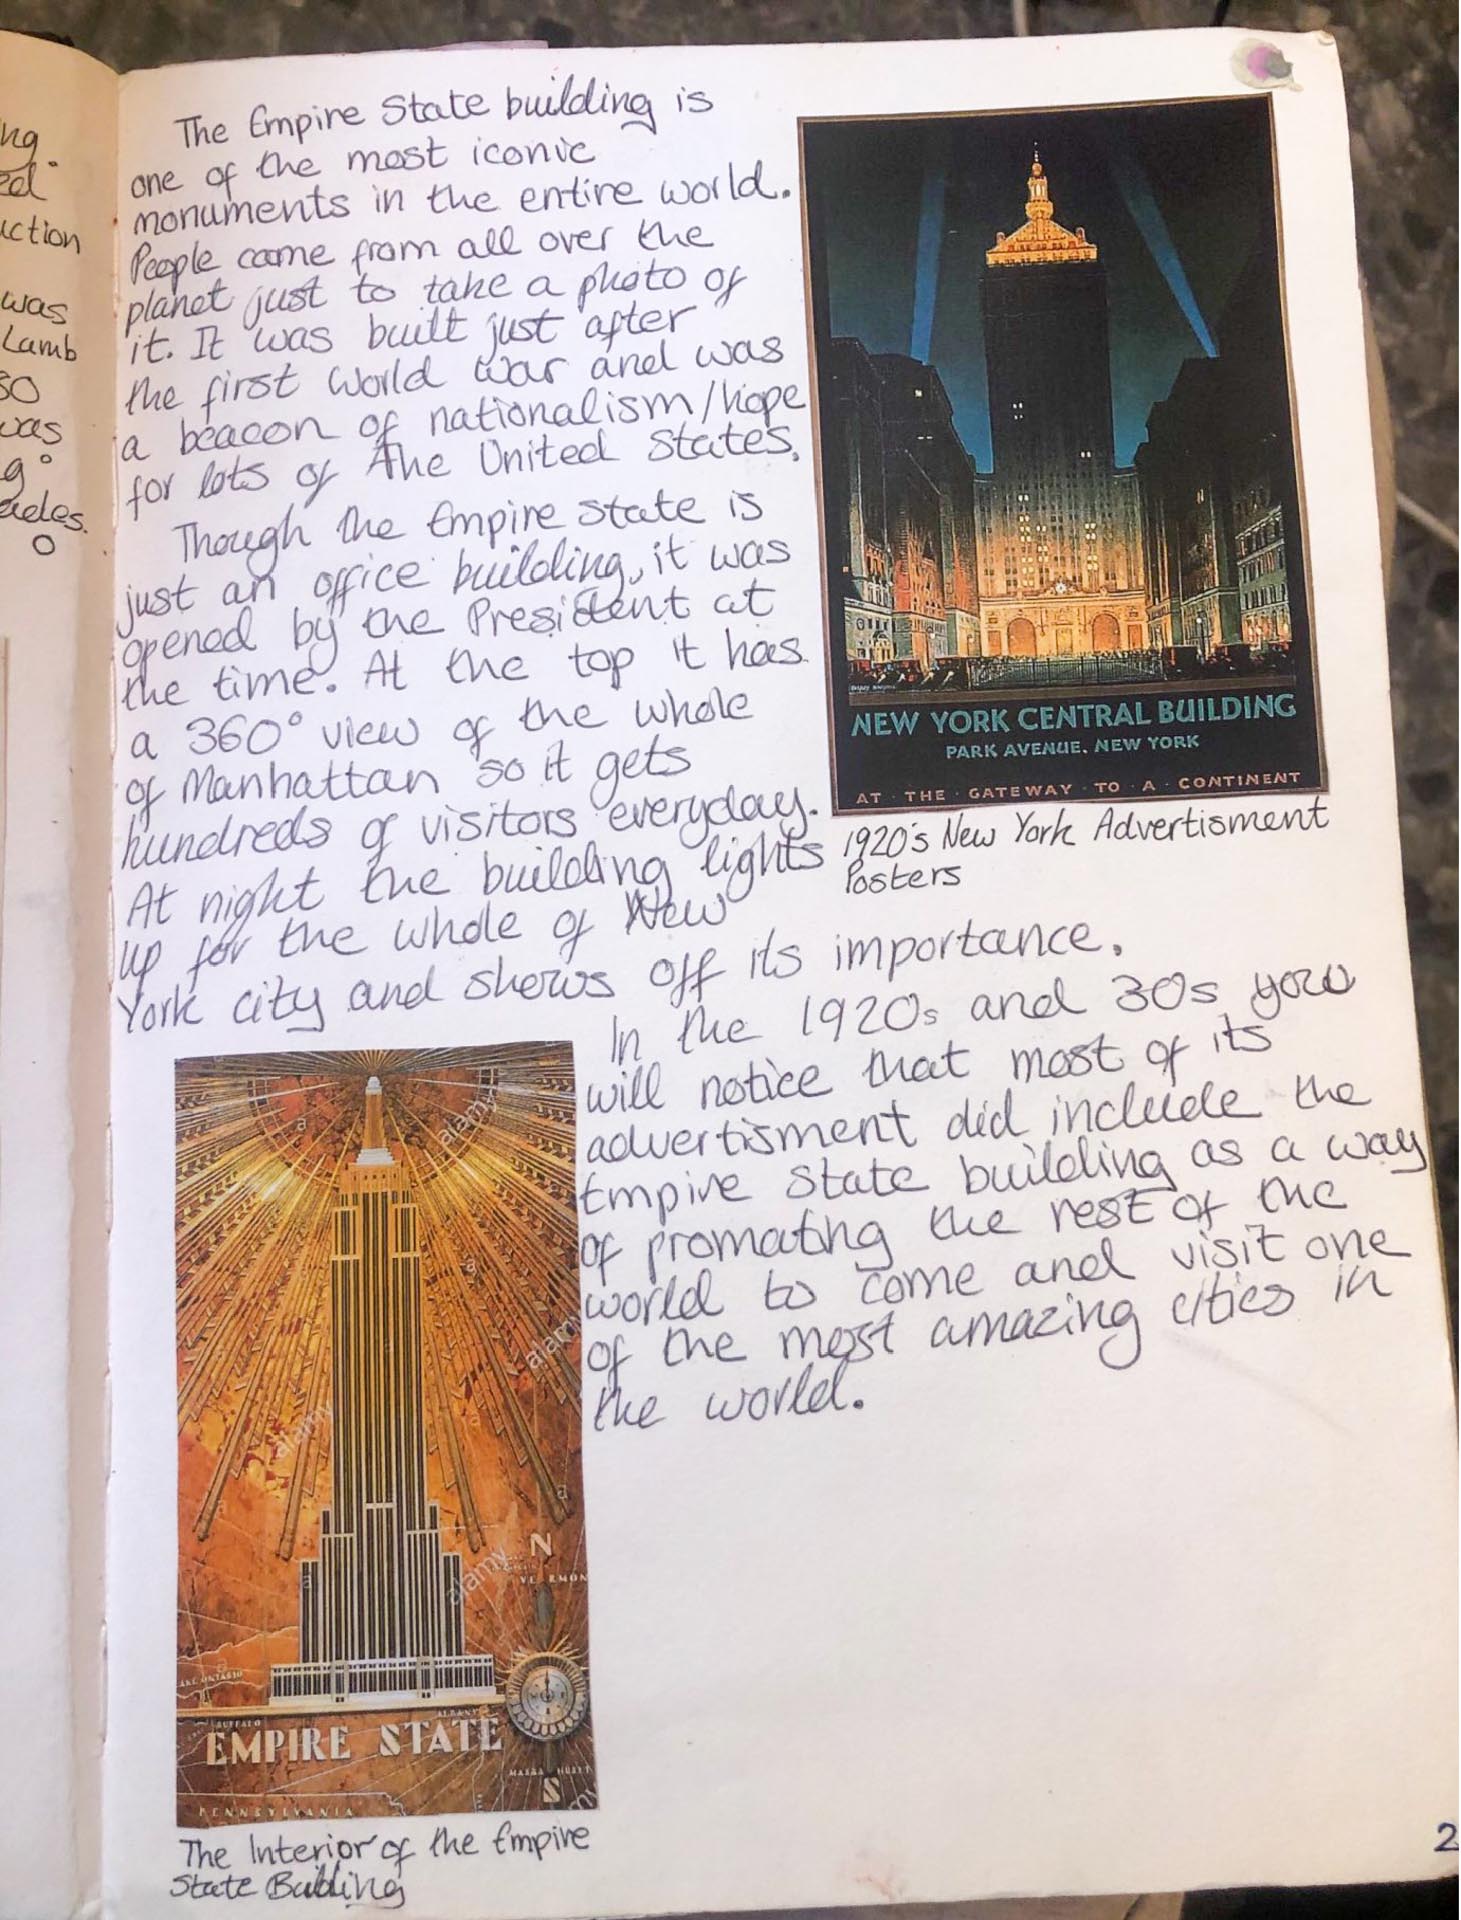 ng.
ed
uction
was
Lamb
so
was
g.
ades.
The Empire State building is
one of the most iconic
monuments in the entire world.
People come from all over the
planet just to take a photo of
it. It was built just after
the first World War and was
a beacon of nationalism/hope
for lots of the United States.
Though the Empire State is
just an office building, it was
opened by the President at
the time. At the top it has
a 360° view of the whole
of Manhattan so it gets
hundreds of visitors everyday.
At night the building lights
up for the whole of New
York city and shows off its importance.
NEW YORK CENTRAL BUILDING
PARK AVENUE. NEW YORK
AT · THE · GATEWAY · TO · A · CONTINENT
1920's New York Advertisment
Posters
In the 1920s and 30s you
will notice that most of its
advertisment did include the
Empire State building as a way
of promoting the rest of the
world to come and visit one
of the most amazing cities in
the world.
alamy
a
alamy
alamy
alamy
N
VERMON
LAKE ONTARIO
BUFFALO
ALBANY
EMPIRE STATE
S
PENNSYLVANIA
The Interior of the Empire
State Building
2